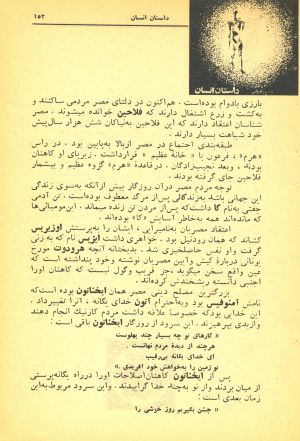 ۱۵۲
داستان انسان
داستان انسان
بارزی بادوام بوده‌است. هم‌اکنون در دلتای مصر مردمی ساکنند و
به‌کشت و زرع اشتغال دارند که فلاحین خوانده میشوند. مصر
شناسان اعتقاد دارند که این فلاحین به‌نیاکان شش هزار سال‌پیش
خود شباهت بسیار دارند.
طبقه‌بندی اجتماع در مصر ازبالا به‌پایین بود. در راس
«هرم»، فرعون یا «خانهٔ عظیم» قرارداشت. زیرپای او کاهنان
بودند وبعد نجیب‌زادگان. درقاعدهٔ «هرم» گروه عظیم و بیشمار
فلاحین جای گرفته بودند.
توجه مردم مصر درآن روزگار بیش ازآنکه به‌سوی زندگی
این جهانی باشد به‌زندگانی پس‌از مرگ معطوف بوده‌است. تن آدمی
جفتی به‌نام کا داشت‌که پس‌از مردن تن زنده میماند. این‌مومیائی‌ها
که مانده‌اند همه به‌خاطر آسایش «کا» بوده‌اند.
اعتقاد مصریان به‌نامیرایی، ایشان را به‌پرستش اوزیریس
کشاند که همان رودنیل بود. خواهری داشت ایزیس نام که به زنی
گرفت واز نفس حاصلخیزی شد. بدبختانه آنچه هرودوت مورخ
یونانی درباره کیش وآیین مصریان نوشته وخود پنداشته است که
عین واقع سخن میگوید، جز فریب وگول نیست که کاهنان اورا
اجنبی دانسته ریشخندش کرده‌اند.
بزرگترین مصلح دینی مصر همان ایخناتون بوده‌است که
نامش آمنوفیس بود وبه‌احترام آتون خدای یگانه، آنرا تغییرداد.
این خدایی بودکه خصوصا علاقه داشت مردم کارنیك انجام دهند
وازبدی بپرهیزند. این سرود از روزگار ایخناتون باقی است:
« کارهای تو چه بسیار چند پهلوست
هرچند از دیده مردم نهانست.
ای خدای یگانه بی‌رقیب
تو زمین را به‌خواهش خود آفریدی.»
پس از ایخناتون کاهنان‌اصلاحات اورا درراه یگانه‌پرستی
از میان بردند واز نو به‌چند خدا گراییدند. واین سرود مربوط‌به‌این
زمان بعدی است:
« جشن بگیریم روز خوشی را